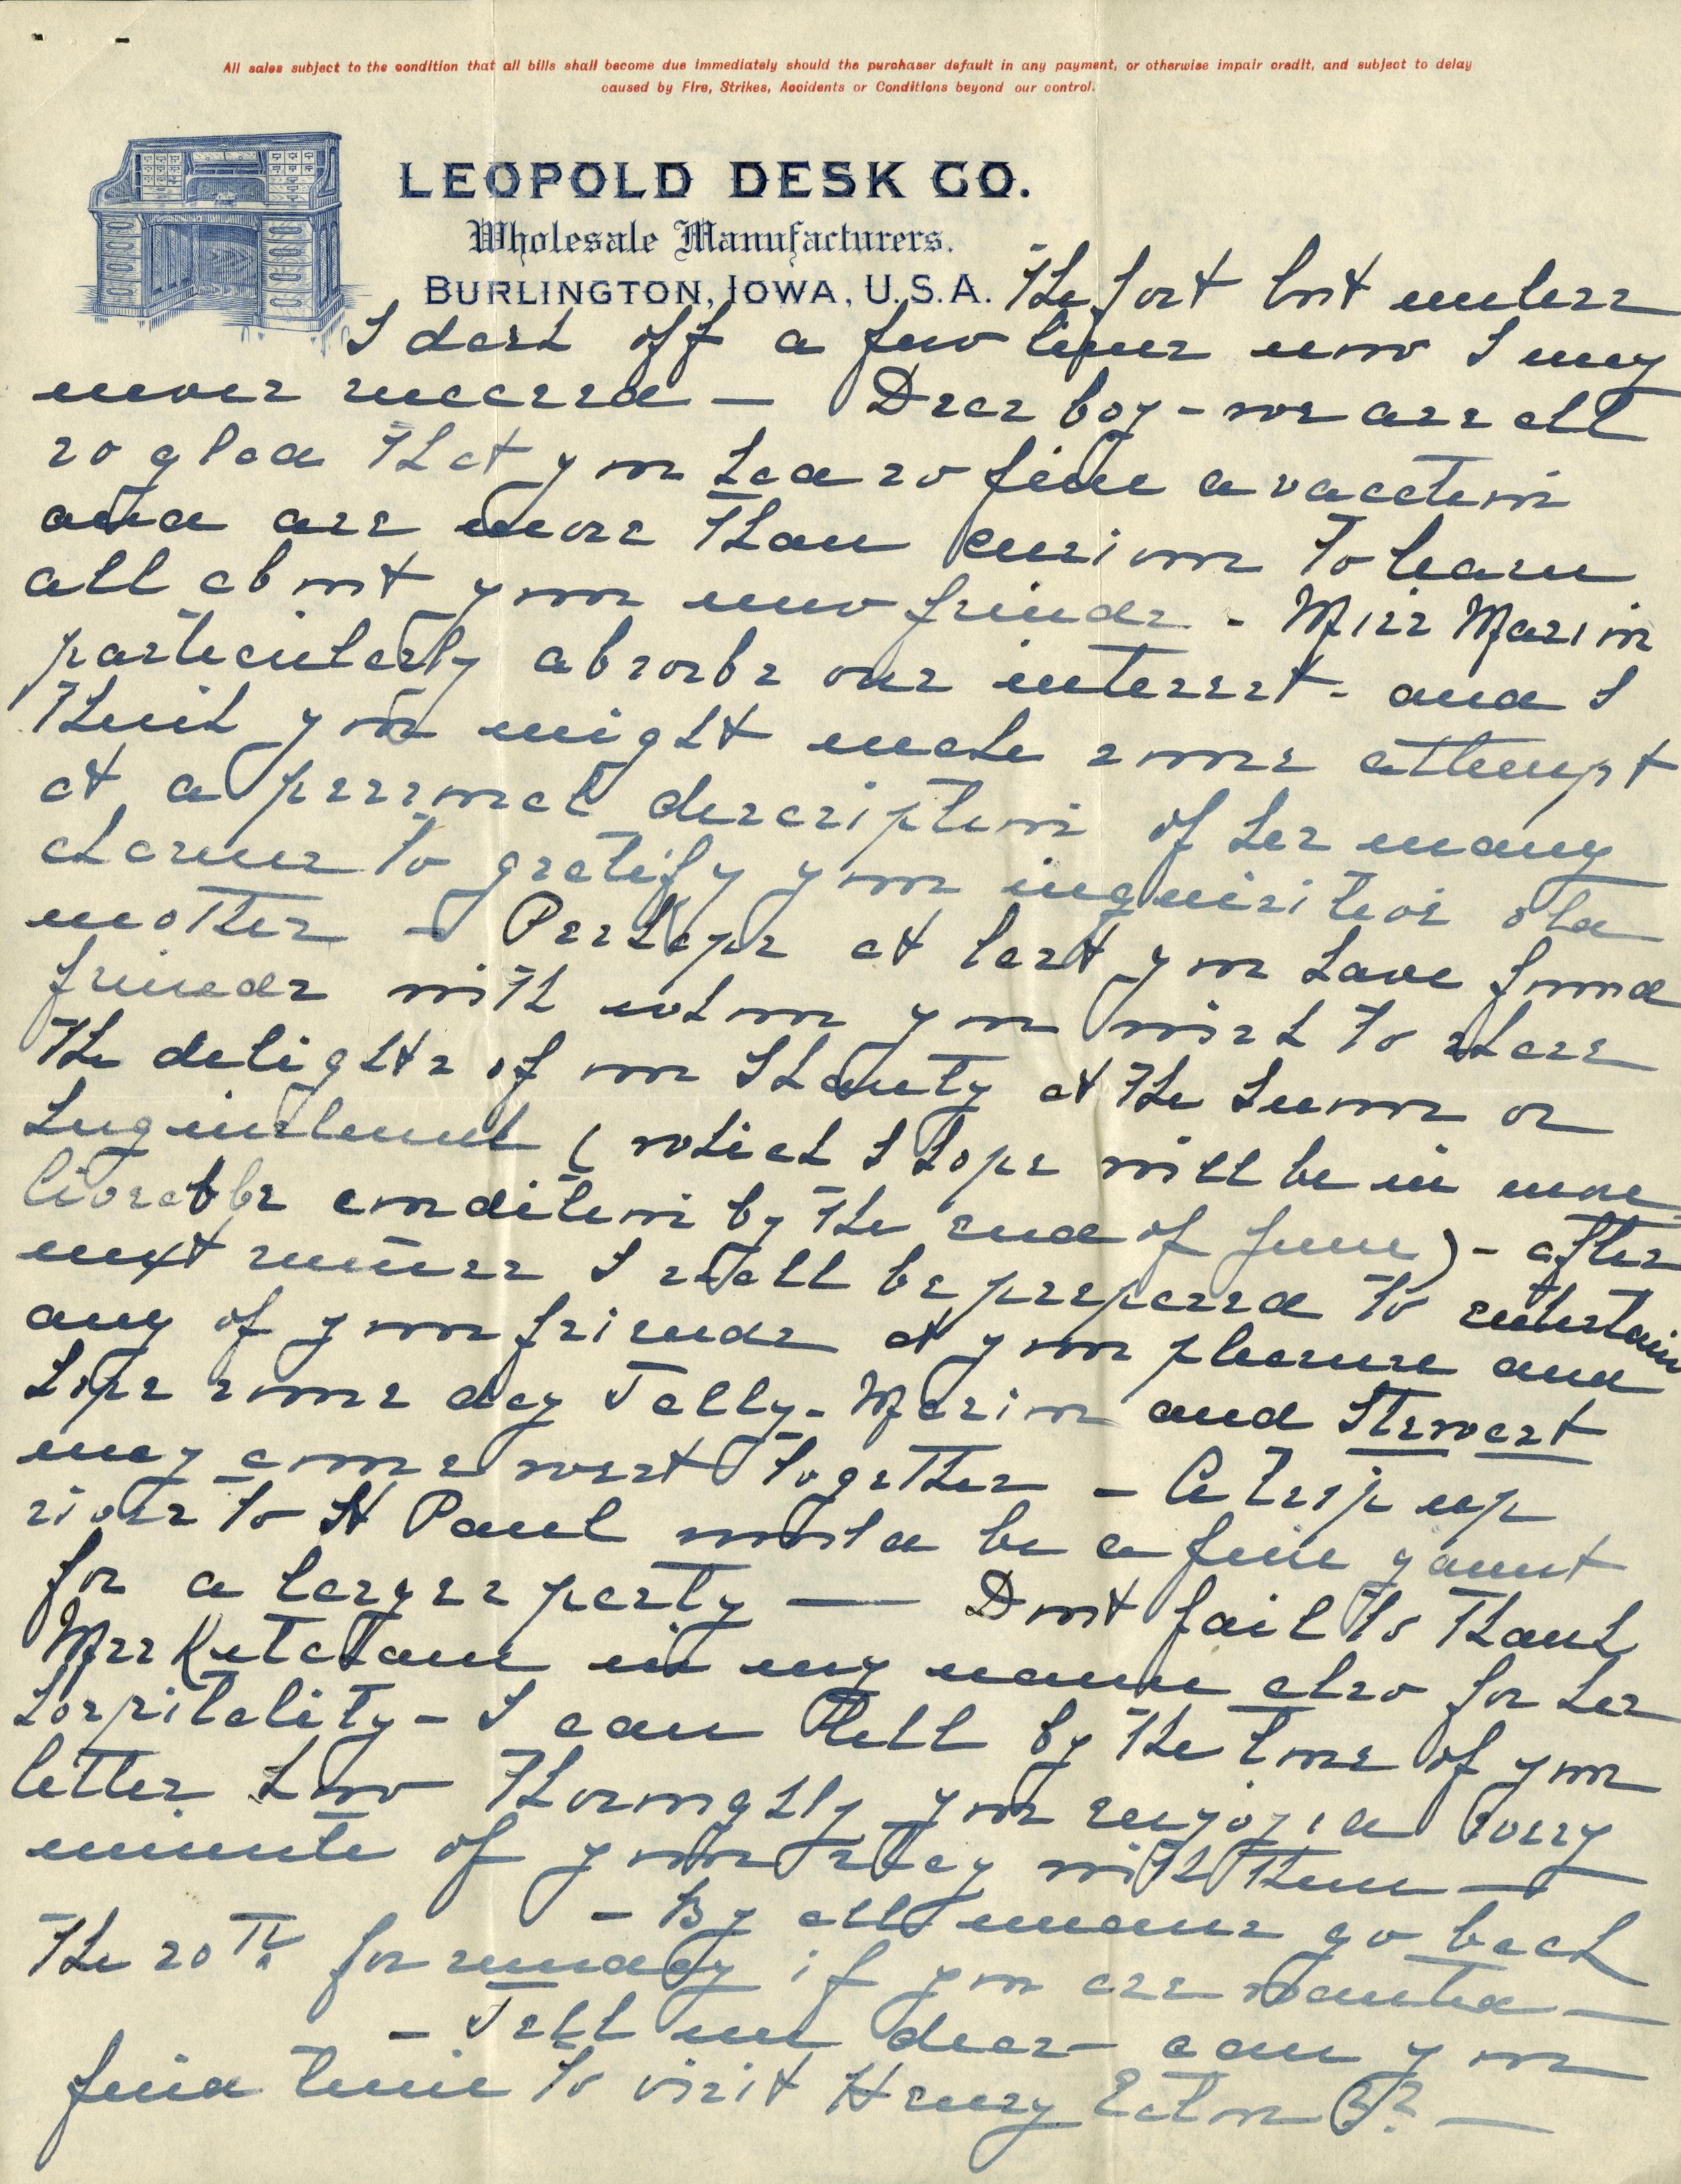 All sales subject to the condition that all bills shall become due immediately should the purchaser default in any payment, or otherwise impair credit, and subject to delay
caused by Fire, Strikes, Accidents or Conditions beyond our control.
LEOPOLD DESK CO.
Wholesale Manufacturers.
BURLINGTON, IOWA, U.S.A.
The fort but unless
I dash off a few lines now I may
never succeed — Dear boy - we are all
so glad that you had so fine a vacation
and are more than curious to learn
all about your new friends - Miss Marion
particularly absorbs our interest - and I
think you might make some attempt
at a personal description of her many
charms to gratify your inquisitive old
mother - Perhaps at last you have found
friends with whom you wish to share
the delights of our Shanty at the Huron or
Lug (which I hope will be in more
liveable condition by the end of June) - after
next summer I shall be prepared to entertain
any of your friends at your pleasure and
hope some day Tally - Marion and Stewart
may come west together - A trip up
river to St Paul would be a fine gaunt
for a larger party — Dont fail to thank
Mrs Ketcham in my name also for her
hospitality - I can tell by the tone of your
letter how thoroughly you enjoyed every
minute of your stay with them —
- By all means go back
The 20th for sunday if you are wanted —
- Tell me dear - can you
find time to visit Henry Eaton B? —